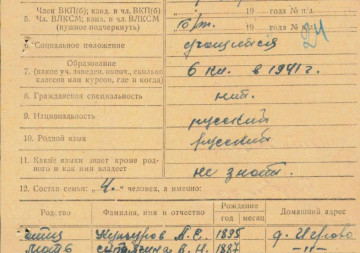 Член ВКП(б); канд. в чл. ВКП(б) 19 — года № п/д.
5. Чл. ВЛКСМ; канд. в чл. ВЛКСМ б/п. 24
(нужное подчеркнуть) 19 — года № п/д.
6. Социальное положение учащийся
7. Образование
(какое уч. заведен. оконч., сколько 6 кл. в 1941 г.
классов или курсов, где и когда)
8. Гражданская специальность нит.
9. Национальность русский
10. Родной язык русский
11. Какие языки знает кроме род-
ного и как ими владеет не знает.
12. Состав семьи: „4" человек, а именно:
Родство Фамилия, имя и отчество Рождение Домашний адрес
год месяц
отец М. Е. 1895
мать В. Н. 1887 —"—